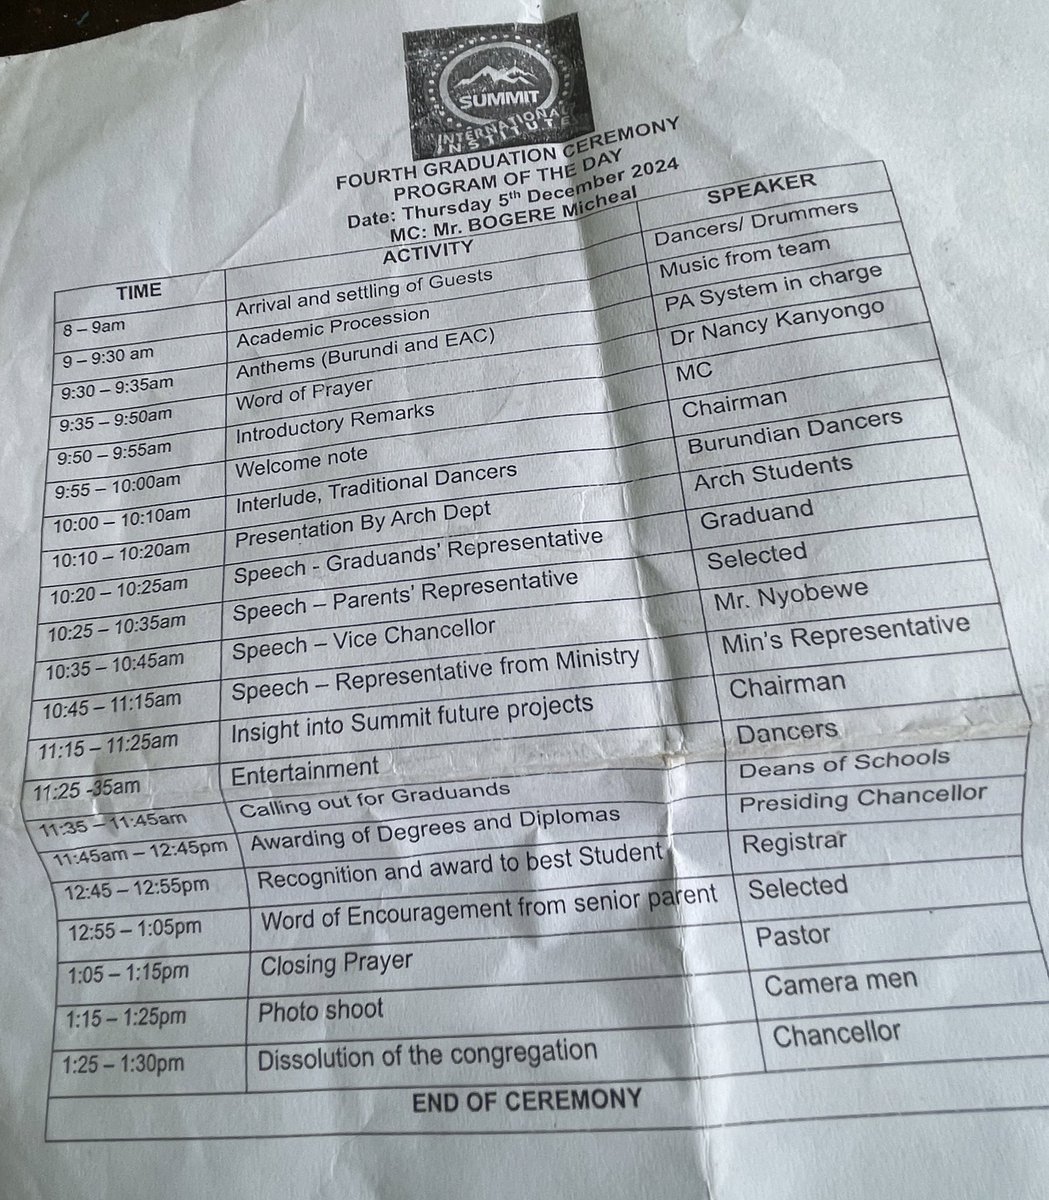 SUMMIT
INTERNATIONAL
INSTITUTE
FOURTH GRADUATION CEREMONY
PROGRAM OF THE DAY
Date: Thursday 5th December 2024
MC: Mr. BOGERE Micheal
TIME ACTIVITY SPEAKER
8 – 9am Arrival and settling of Guests Dancers/ Drummers
9 – 9:30 am Academic Procession Music from team
9:30 – 9:35am Anthems (Burundi and EAC) PA System in charge
9:35 – 9:50am Word of Prayer Dr Nancy Kanyongo
9:50 – 9:55am Introductory Remarks MC
9:55 – 10:00am Welcome note Chairman
10:00 – 10:10am Interlude, Traditional Dancers Burundian Dancers
10:10 – 10:20am Presentation By Arch Dept Arch Students
10:20 – 10:25am Speech - Graduands' Representative Graduand
10:25 – 10:35am Speech – Parents' Representative Selected
10:35 – 10:45am Speech – Vice Chancellor Mr. Nyobewe
10:45 – 11:15am Speech – Representative from Ministry Min's Representative
11:15 – 11:25am Insight into Summit future projects Chairman
11:25 -35am Entertainment Dancers
11:35 – 11:45am Calling out for Graduands Deans of Schools
11:45am – 12:45pm Awarding of Degrees and Diplomas Presiding Chancellor
12:45 – 12:55pm Recognition and award to best Student Registrar
12:55 – 1:05pm Word of Encouragement from senior parent Selected
1:05 – 1:15pm Closing Prayer Pastor
1:15 – 1:25pm Photo shoot Camera men
1:25 – 1:30pm Dissolution of the congregation Chancellor
END OF CEREMONY